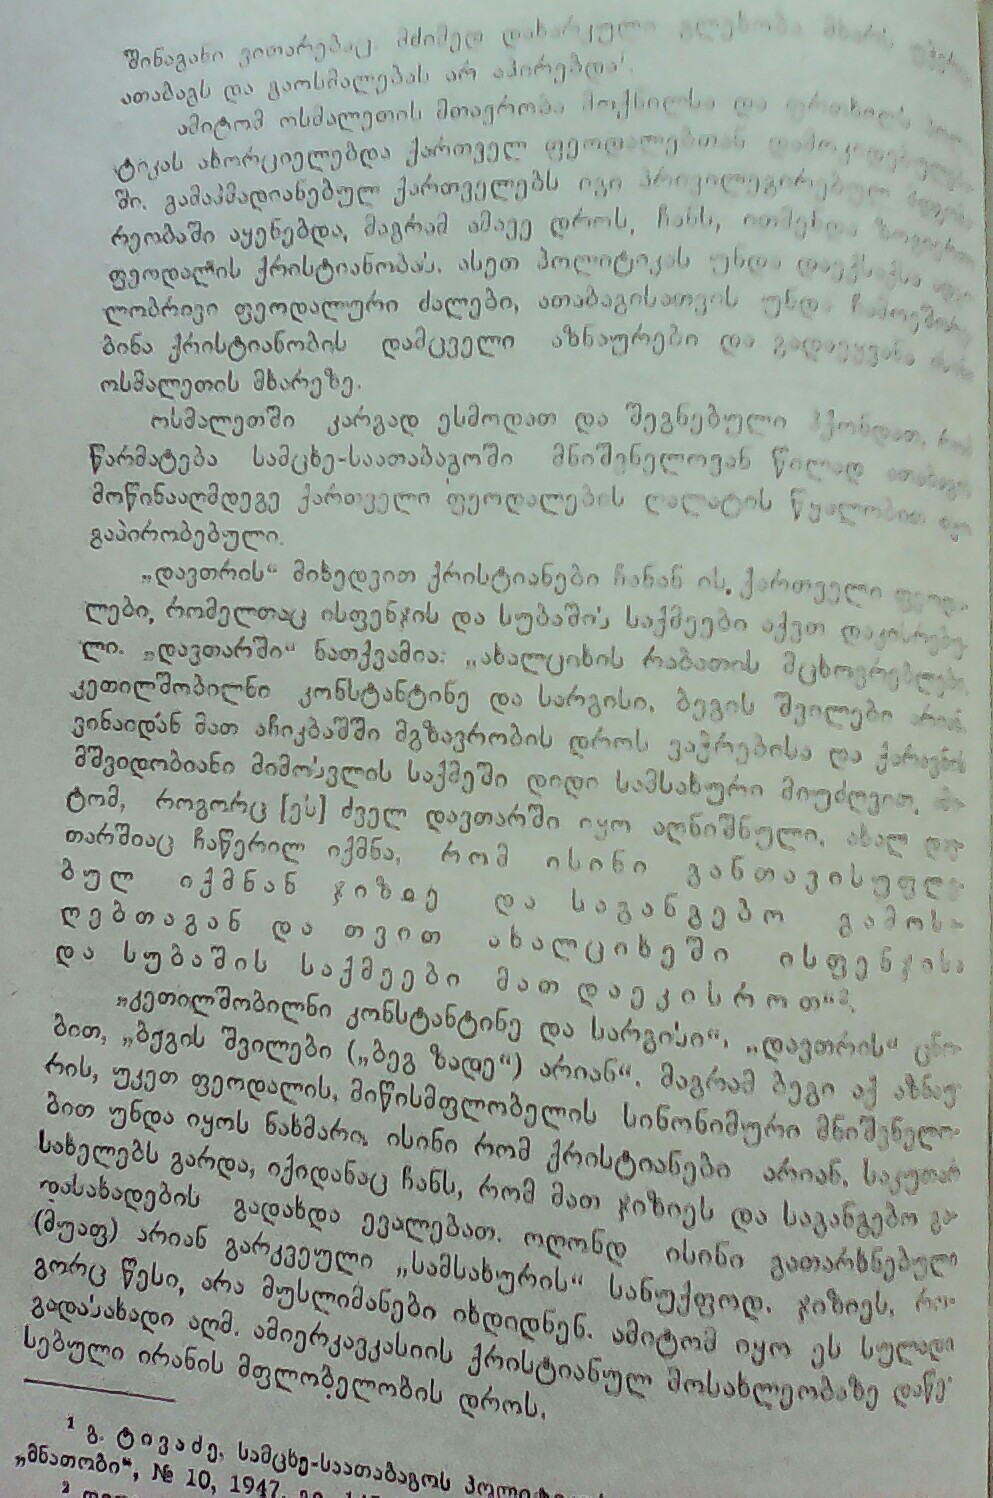 შინაგანი ვითარებაც. მძიმედ დახარკული გლეხობა მხარს
ათაბაგს და გაოსმალებას არ აპირებდა¹.
ამიტომ ოსმალეთის მთავრობა მოქნილსა და ფრთხილ
ტიკას ახორციელებდა ქართველ ფეოდალებთან დამოკიდებულება-
ში. გამაჰმადიანებულ ქართველებს იგი პრივილეგირებულ მდგომა-
რეობაში აყენებდა, მაგრამ ამავე დროს, ჩანს, ითმენდა ზოგიერთ
ფეოდალის ქრისტიანობას. ასეთ პოლიტიკას უნდა დაექსაქსა ადგი-
ლობრივი ფეოდალური ძალები, ათაბაგისათვის უნდა ჩამოეშორე-
ბინა ქრისტიანობის დამცველი აზნაურები და გადაეყვანა ისინი
ოსმალეთის მხარეზე.
ოსმალეთში კარგად ესმოდათ და შეგნებული ჰქონდათ, რომ
წარმატება სამცხე-საათაბაგოში მნიშვნელოვან წილად ათაბაგის
მოწინააღმდეგე ქართველი ფეოდალების ღალატის წყალობით იყო
გაპირობებული.
„დავთრის“ მიხედვით ქრისტიანები ჩანან ის ქართველი ფეოდა-
ლები, რომელთაც ისფენჯის და სუბაშის საქმეები აქვთ დაკისრებუ-
ლი. „დავთარში“ ნათქვამია: „ახალციხის რაბათის მცხოვრებლები,
კეთილშობილნი კონსტანტინე და სარგისი, ბეგის შვილები არიან.
ვინაიდან მათ აჩიკბაშში მგზავრობის დროს ვაჭრებისა და ქარავნის
მშვიდობიანი მიმოსვლის საქმეში დიდი სამსახური მიუძღვით, ამი-
ტომ, როგორც [ეს] ძველ დავთარში იყო აღნიშნული, ახალ დავ-
თარშიაც ჩაწერილ იქმნა, რომ ისინი განთავისუფლე-
ბულ იქმნან ჯიზიე და საგანგებო გამოსა-
ღებთაგან და თვით ახალციხეში ისფენჯისა
და სუბაშის საქმეები მათ დაეკისროთ“².
„კეთილშობილნი კონსტანტინე და სარგისი“, „დავთრის“ ცნო-
ბით, „ბეგის შვილები („ბეგ ზადე“) არიან“. მაგრამ ბეგი აქ აზნაუ-
რის, უკეთ ფეოდალის, მიწისმფლობელის სინონიმური მნიშვნელო-
ბით უნდა იყოს ნახმარი. ისინი რომ ქრისტიანები არიან, საკუთარ
სახელებს გარდა, იქიდანაც ჩანს, რომ მათ ჯიზიეს და საგანგებო გა-
დასახადების გადახდა ევალებათ. ოღონდ ისინი გათარხნებული
(მუაფ) არიან გარკვეული „სამსახურის“ სანუქფოდ. ჯიზიეს, რო-
გორც წესი, არა მუსლიმანები იხდიდნენ. ამიტომ იყო ეს სულადი
გადასახადი აღმ. ამიერკავკასიის ქრისტიანულ მოსახლეობაზე დაწე-
სებული ირანის მფლობელობის დროს.
¹ გ. ტივაძე, სამცხე-საათაბაგოს
„მნათობი“, № 10, 1947,
²